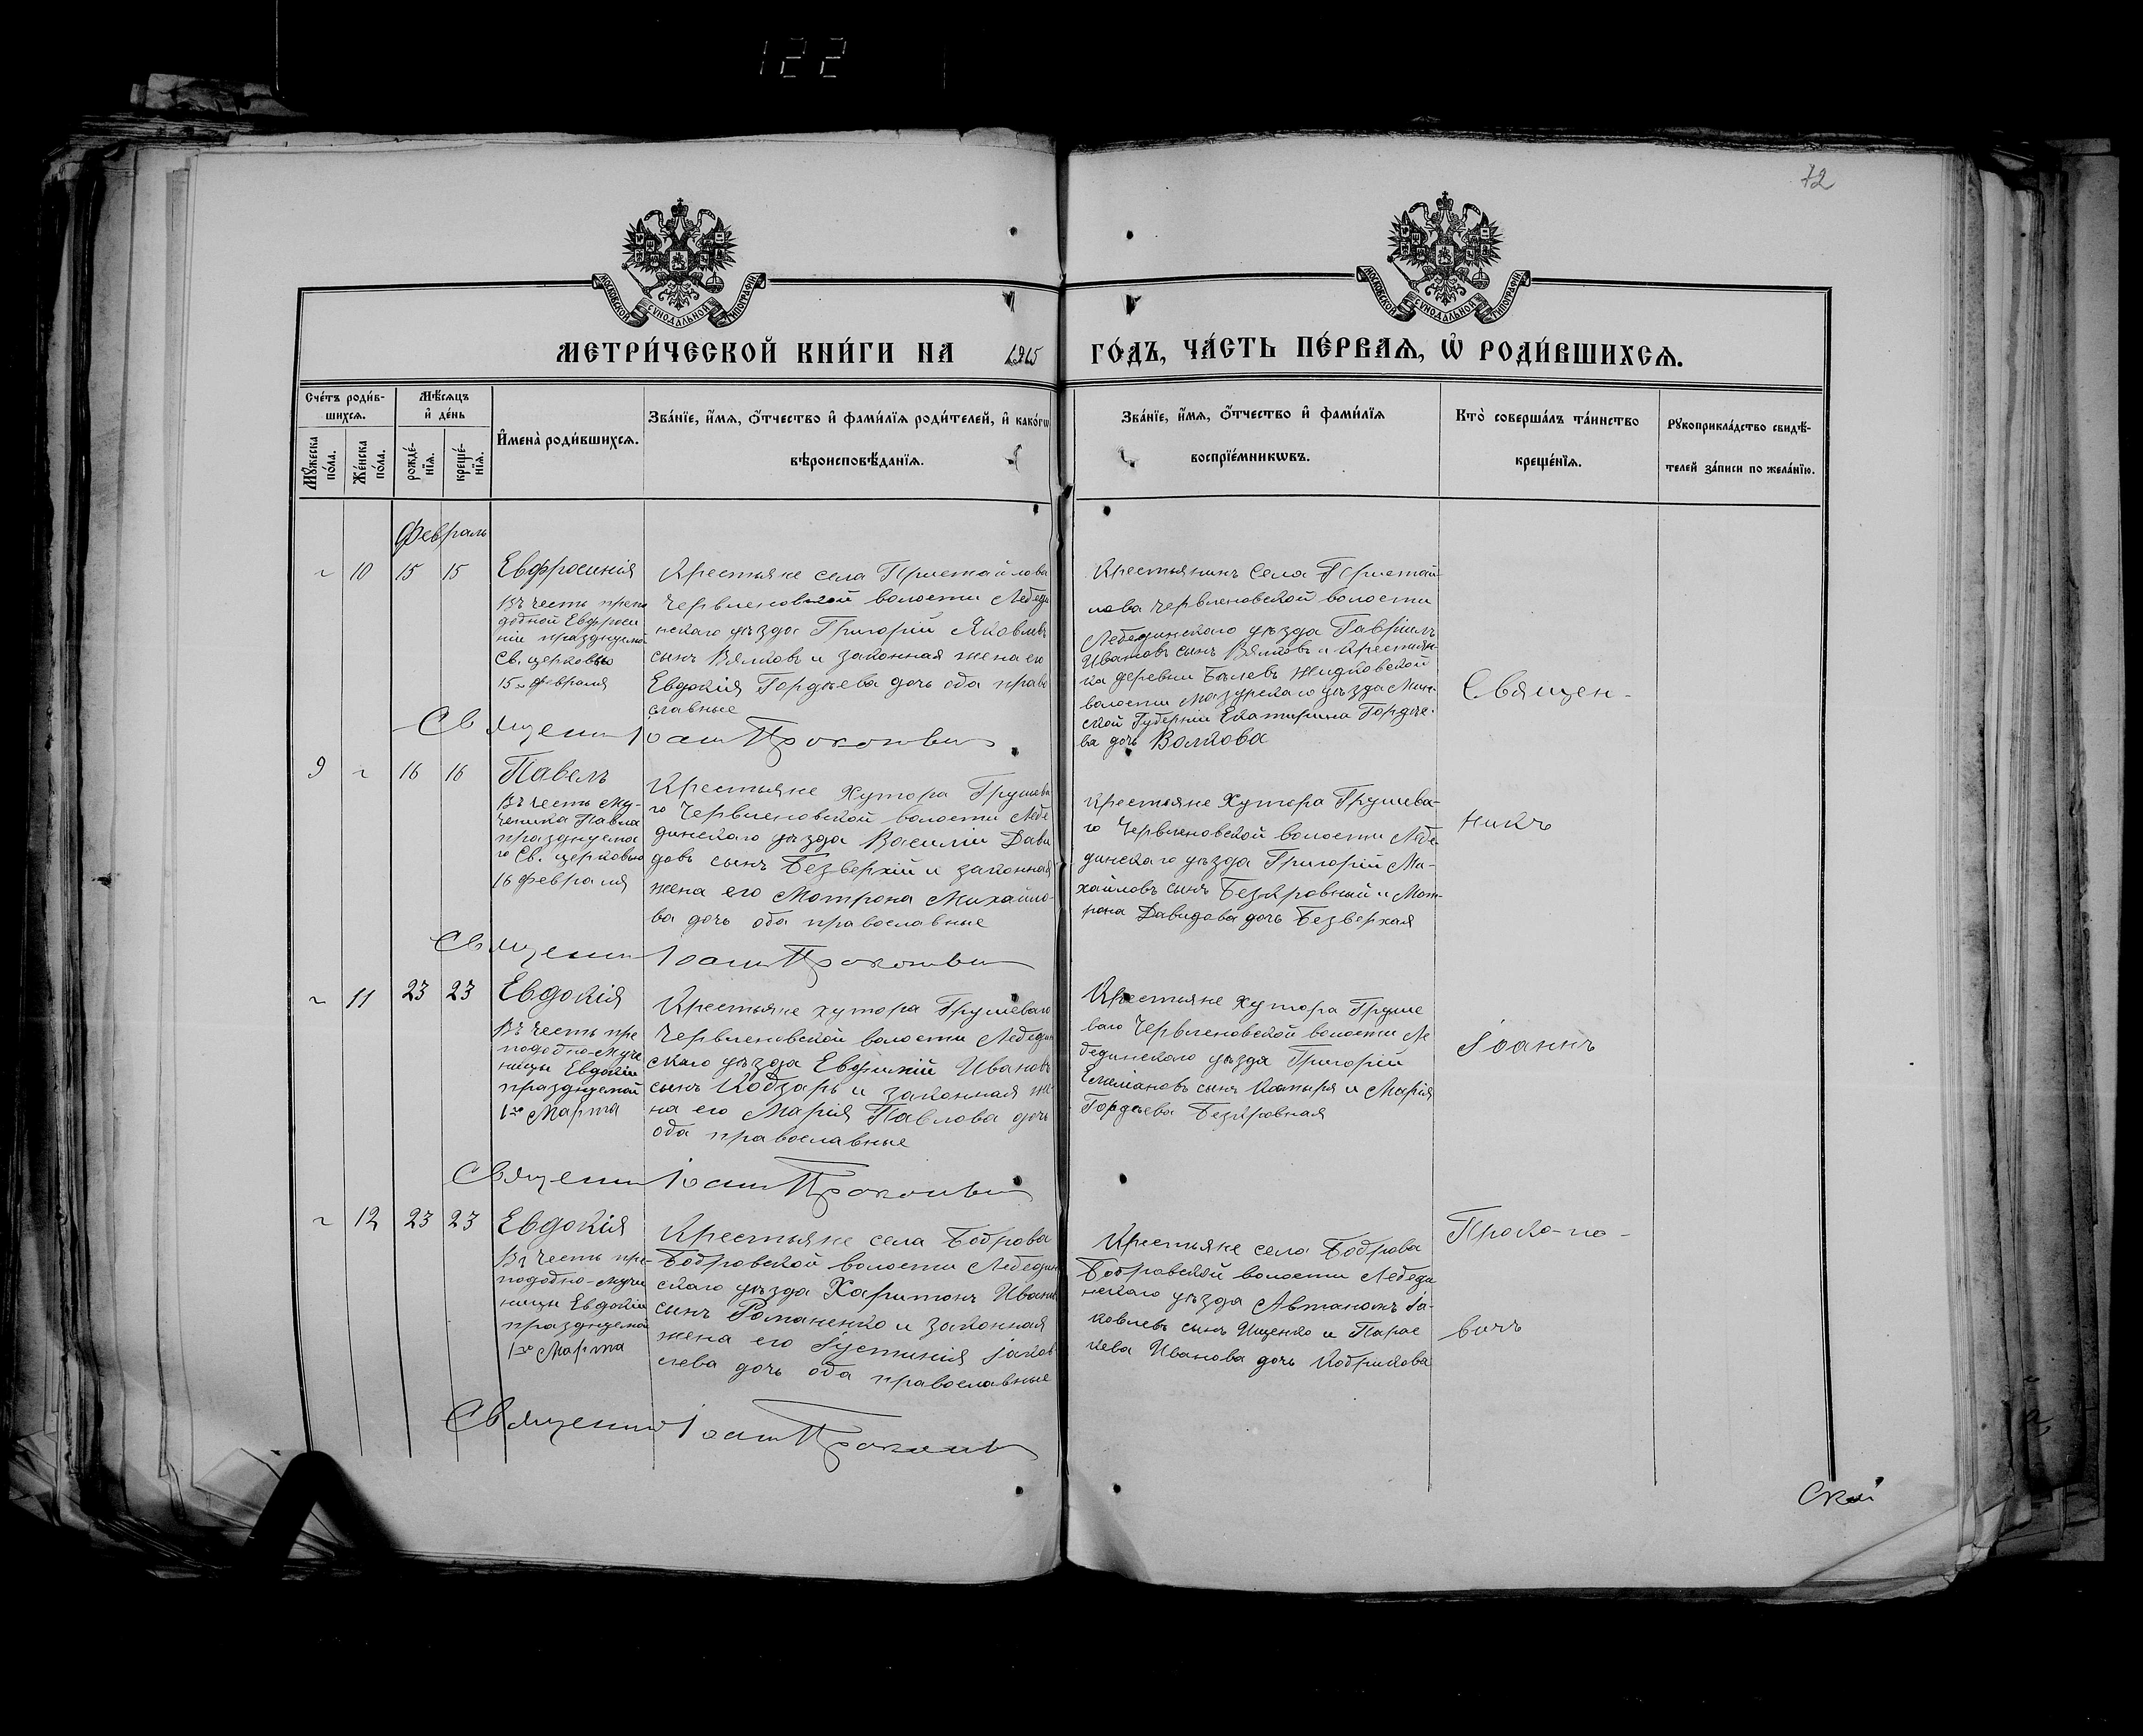 122
12
МОСКОВСКОЙ СѴНОДАЛЬНОЙ ТИПОГРАФІИ
МОСКОВСКОЙ СѴНОДАЛЬНОЙ ТИПОГРАФІИ
МЕТРИ́ЧЕСКОЙ КНИ́ГИ НА 1915 ГО́ДЪ, ЧА́СТЬ ПЕ́РВАѦ, Ѡ҆ РОДИ́ВШИХСѦ.
Сче́тъ роди́в-
шихсѧ.
Мꙋ́жеска по́ла.
Же́нска по́ла.
Мѣ́сѧцъ и҆ де́нь
рожде́-
нїѧ.
креще́-
нїѧ.
И҆мена̀ роди́вшихсѧ.
Зва́нїе, и҆́мѧ, ѻ҆́тчество и҆ фами́лїѧ роди́телей, и҆ како́гѡ
вѣроисповѣ́данїѧ.
Зва́нїе, и҆́мѧ, ѻ҆́тчество и҆ фами́лїѧ
воспрїе́мникѡвъ.
Кто̀ соверша́лъ та́инство
креще́нїѧ.
Рꙋкоприкла́дство свидѣ́-
телей за́писи по жела́нїю.
Февраль
10 15 15
Евфросинія
Въ честь препо
добной Евфроси
ніи празднуемо
Св. церковью
15го Февраля
Крестьяне села Пристайлова
Червленовской волости Лебеди
нскаго уѣзда Григорій Яковлевъ
сынъ Вялковъ и законная жена его
Евдокія Гордѣева дочь оба право
славные
Крестьянинъ Села Пристай-
лова Червленовской волости
Лебединскаго уѣзда Гавріилъ
Ивановъ сынъ Вялковъ и Крестьян-
ка деревни Жидковской
волости уѣзда Мин-
ской Губерніи Екатерина Гордѣе-
ва дочь Волкова
Священ-
Священникъ Іоаннъ Прокоповичъ
9 16 16
Павелъ
Въ честь Му-
ченика Павла
празднуема
го Св. церковью
16 Февраля
Крестьяне Хутора Грушева
го Червленовской волости Лебе
динскаго уѣзда Василій Дави
довъ сынъ Безверхій и законная
жена его Мотрона Михайло-
ва дочь оба православные
Крестьяне Хутора Грушева-
го Червленовской волости Лебе-
динскаго уѣзда Григорій Ми-
хайловъ сынъ Безкровный и Мот-
рона Давидова дочь Безверхая
никъ
Священникъ Іоаннъ Прокоповичъ
11 23 23
Евдокія
Въ честь пре
подобно-муче
ницы Евдокіи
празднуемой
1го Марта
Крестьяне хутора Грушеваго
Червленовской волости Лебедин
скаго уѣзда Евфимій Ивановъ
сынъ Кобзарь и законная же
на его Марія Павлова дочь
оба православные
Крестьяне хутора Груше
ваго Червленовской волости Ле
бединскаго уѣзда Григорій
сынъ и Марія
Гордѣева Безкровная
Іоаннъ
Священникъ Іоаннъ Прокоповичъ
12 23 23
Евдокія
Въ честь пре-
подобно-мучен
ницы Евдокіи
празднуемой
1го Марта
Крестьяне села Боброва
Бобровской волости Лебедин
скаго уѣзда Харитонъ Ивановъ
сынъ Романенко и законная
жена его Іустинія Іаков
лева дочь оба православные
Крестьяне села Боброва
Бобровской волости Лебеди
нскаго уѣзда Автаномъ Іа-
ковлевъ сынъ Ищенко и Парас
кева Иванова дочь Кобрикова
Проко-по-
вичъ
Священникъ Іоаннъ Прокоповичъ
Ской